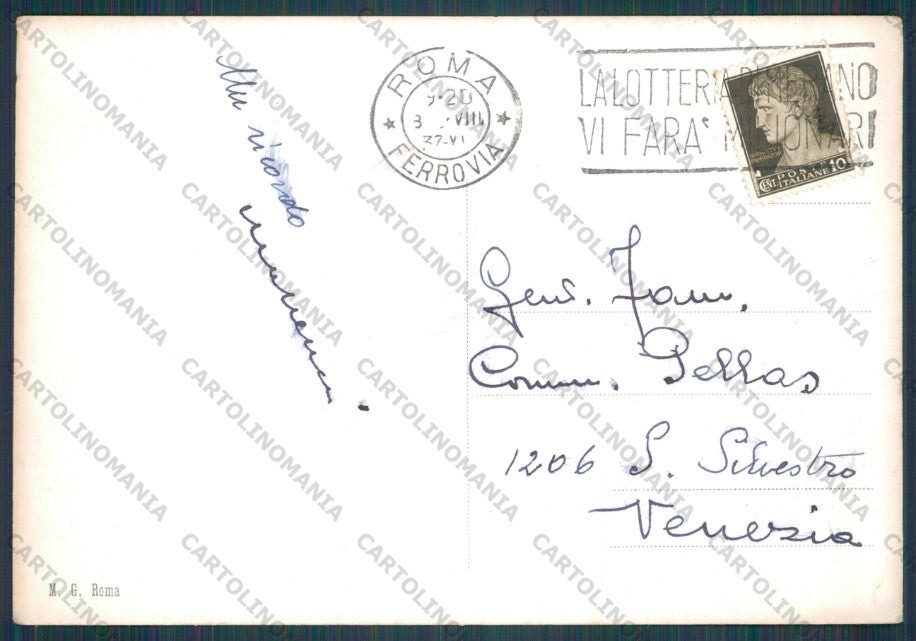 ricordo
ROMA
FERROVIA
9-20
8 VIII
37-XV
LA LOTTERIA DI
VI FARA' MILIONARI
CENT. POSTE ITALIANE 10
Gent. Fam.
Comm. Pellas
1206 S. Silvestro
Venezia
M. G. Roma
CARTOLINOMANIA